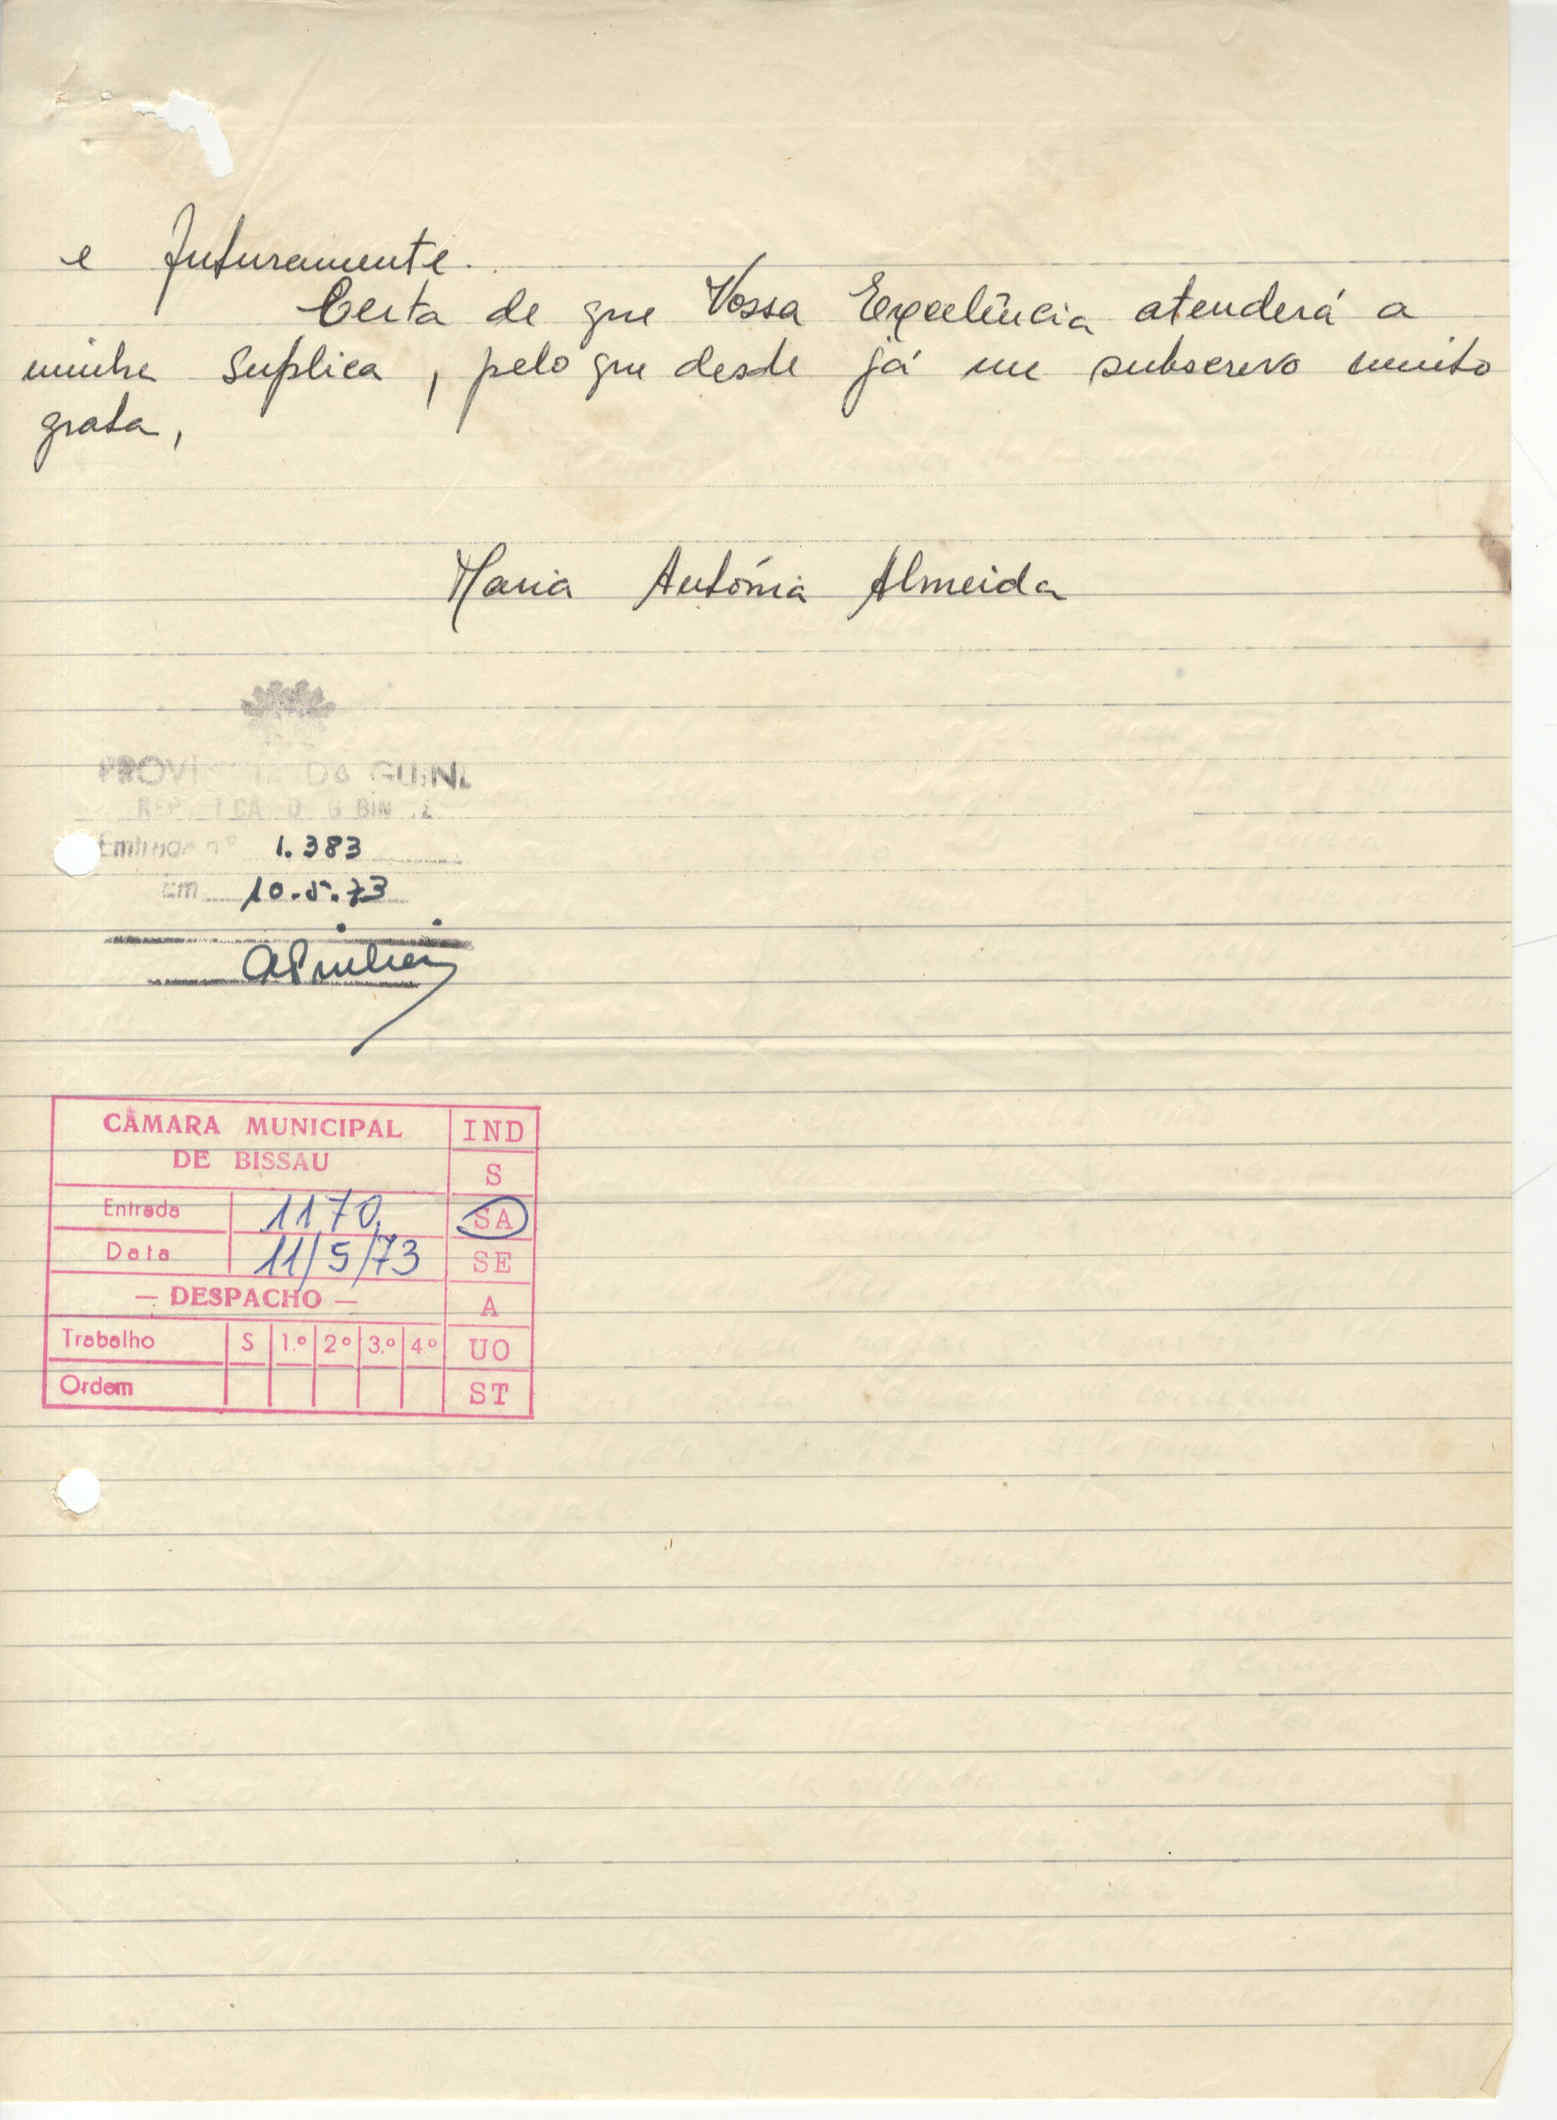 e futuramente.
Certa de que Vossa Excelência atenderá a
minha suplica, pelo que desde já me subscrevo muito
grata,
Maria Antónia Almeida
PROVÍNCIA DA GUINÉ
REPARTIÇÃO DO GABINETE
Entrada nº 1.383
Em 10.5.73
CÂMARA MUNICIPAL IND
DE BISSAU S
Entrada 1170 SA
Data 11/5/73 SE
— DESPACHO — A
Trabalho S 1.º 2º 3.º 4º UO
Ordem ST